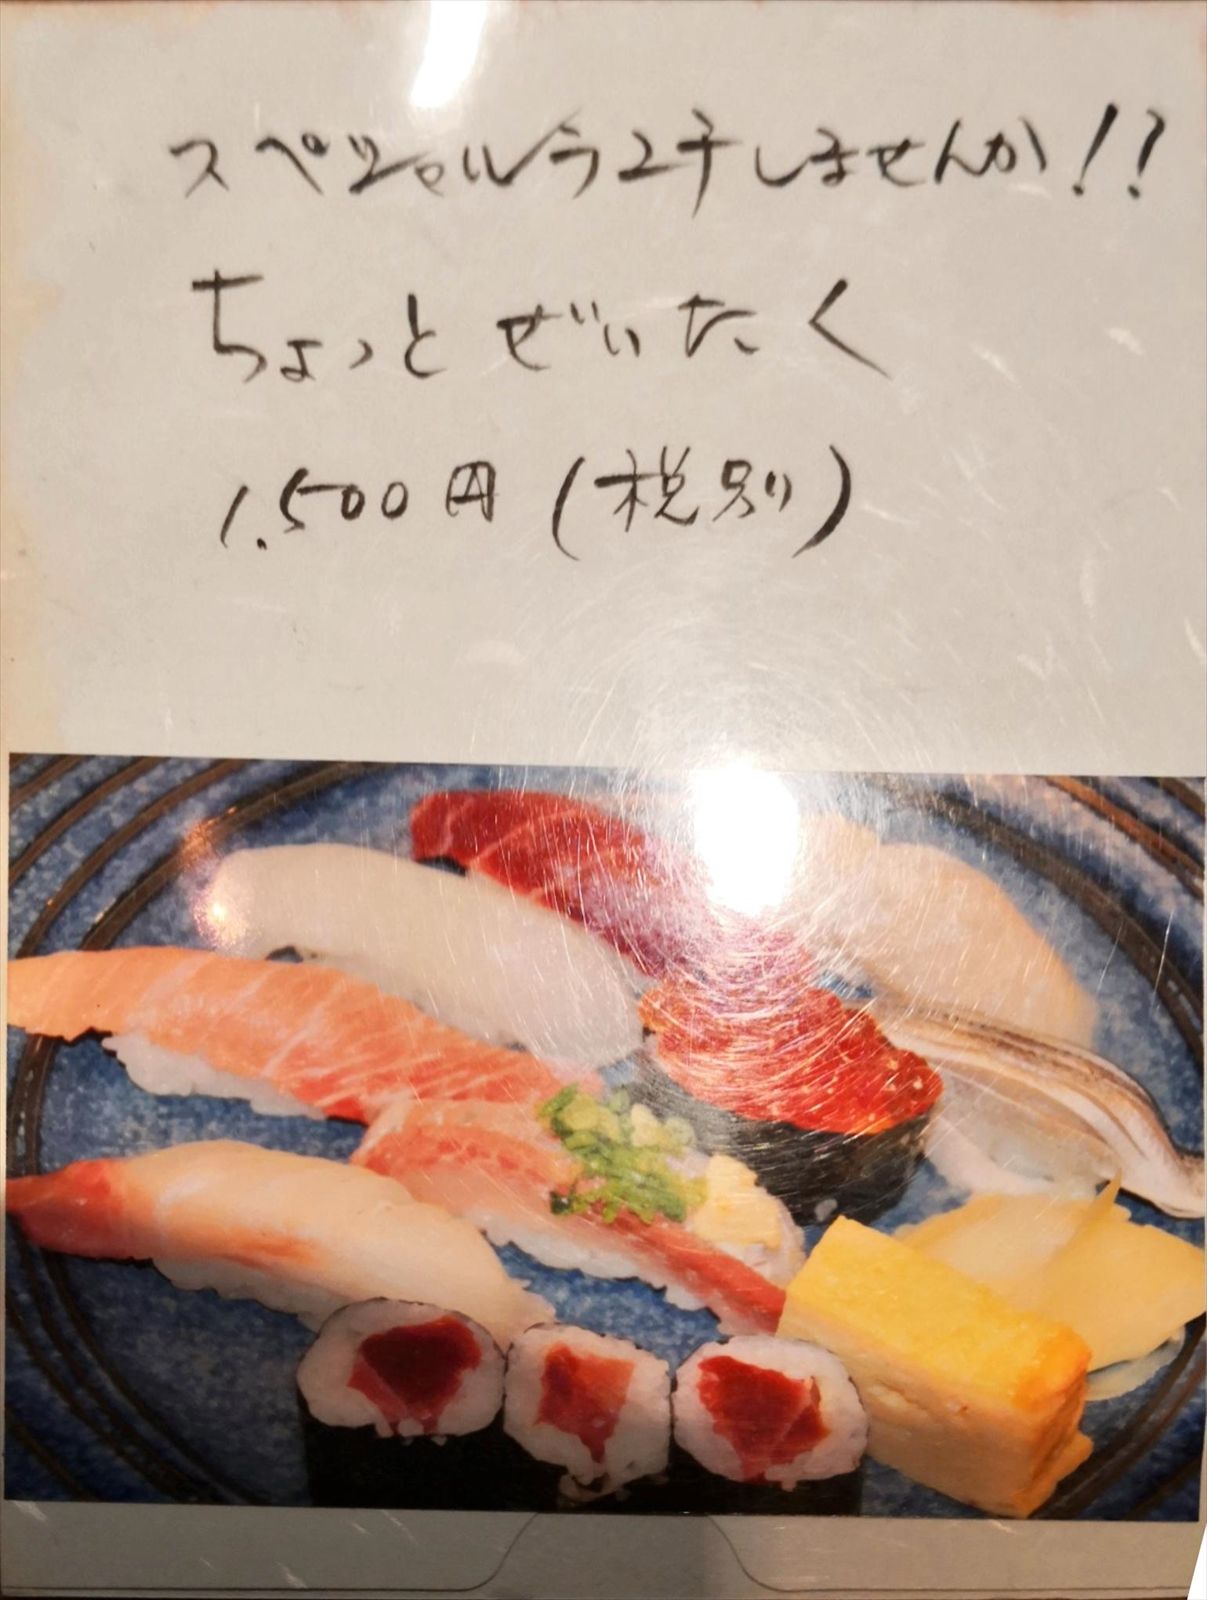 スペシャルランチしませんか!?
ちょっと ぜいたく
1.500円(税別)